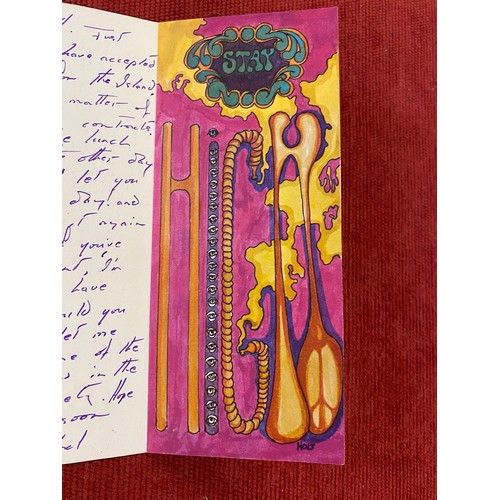 Just
have accepted
the Island
matter of
contracts
lunch
other day
let you
day. and
again
you've
I'm
have
you
let me
of the
in the
Hope
soon
STAY
HIGH
HOLT